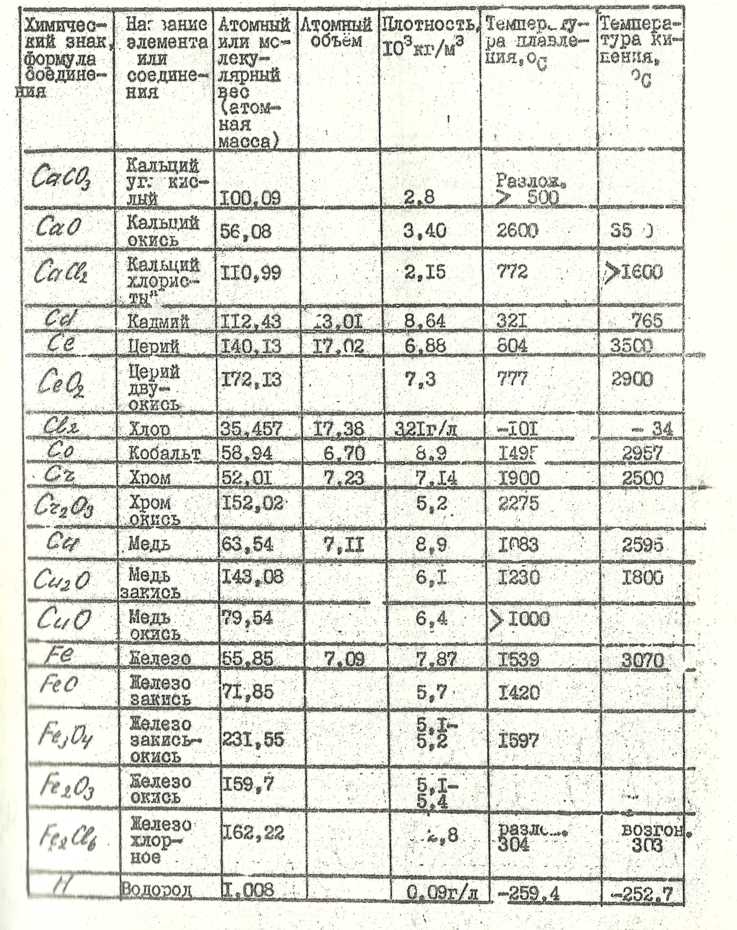 Химичес- Название Атомный Атомный Плотность, Температу- Темпера-
кий знак, элемента или мо- объём 10³кг/м³ ра плавле- тура ки-
формула или леку- ния,°С пения,
соедине- соедине- лярный °С
ния ния вес
(атом-
ная
масса)
CaCO₃ Кальций угл кис- лый 100,09 2,8 Разлож. > 500
CaO Кальций окись 56,08 3,40 2600
CaCl₂ Кальций хлорис- 110,99 2,15 772 >1600
Cd Кадмий 112,43 13,01 8,64 321 765
Ce Церий 140,13 17,02 6,88 804 3500
CeO₂ Церий дву- окись 172,13 7,3 777 2900
Cl₂ Хлор 35,457 17,38 321г/л -101 - 34
Co Кобальт 58,94 6,70 8,9 1495 2957
Cr Хром 52,01 7,23 7,14 1900 2500
Cr₂O₃ Хром окись 152,02 5,2 2275
Cu Медь 63,54 7,11 8,9 1083 2595
Cu₂O Медь закись 143,08 6,1 1230 1800
CuO Медь окись 79,54 6,4 >1000
Fe Железо 55,85 7,09 7,87 1539 3070
FeO Железо закись 71,85 5,7 1420
Fe₃O₄ Железо закись- окись 231,55 5,1- 5,2 1597
Fe₂O₃ Железо окись 159,7 5,1- 5,4
Fe₂Cl₆ Железо хлор- ное 162,22 2,8 304 возгон. 303
H Водород 1,008 0,09г/л -259,4 -252,7